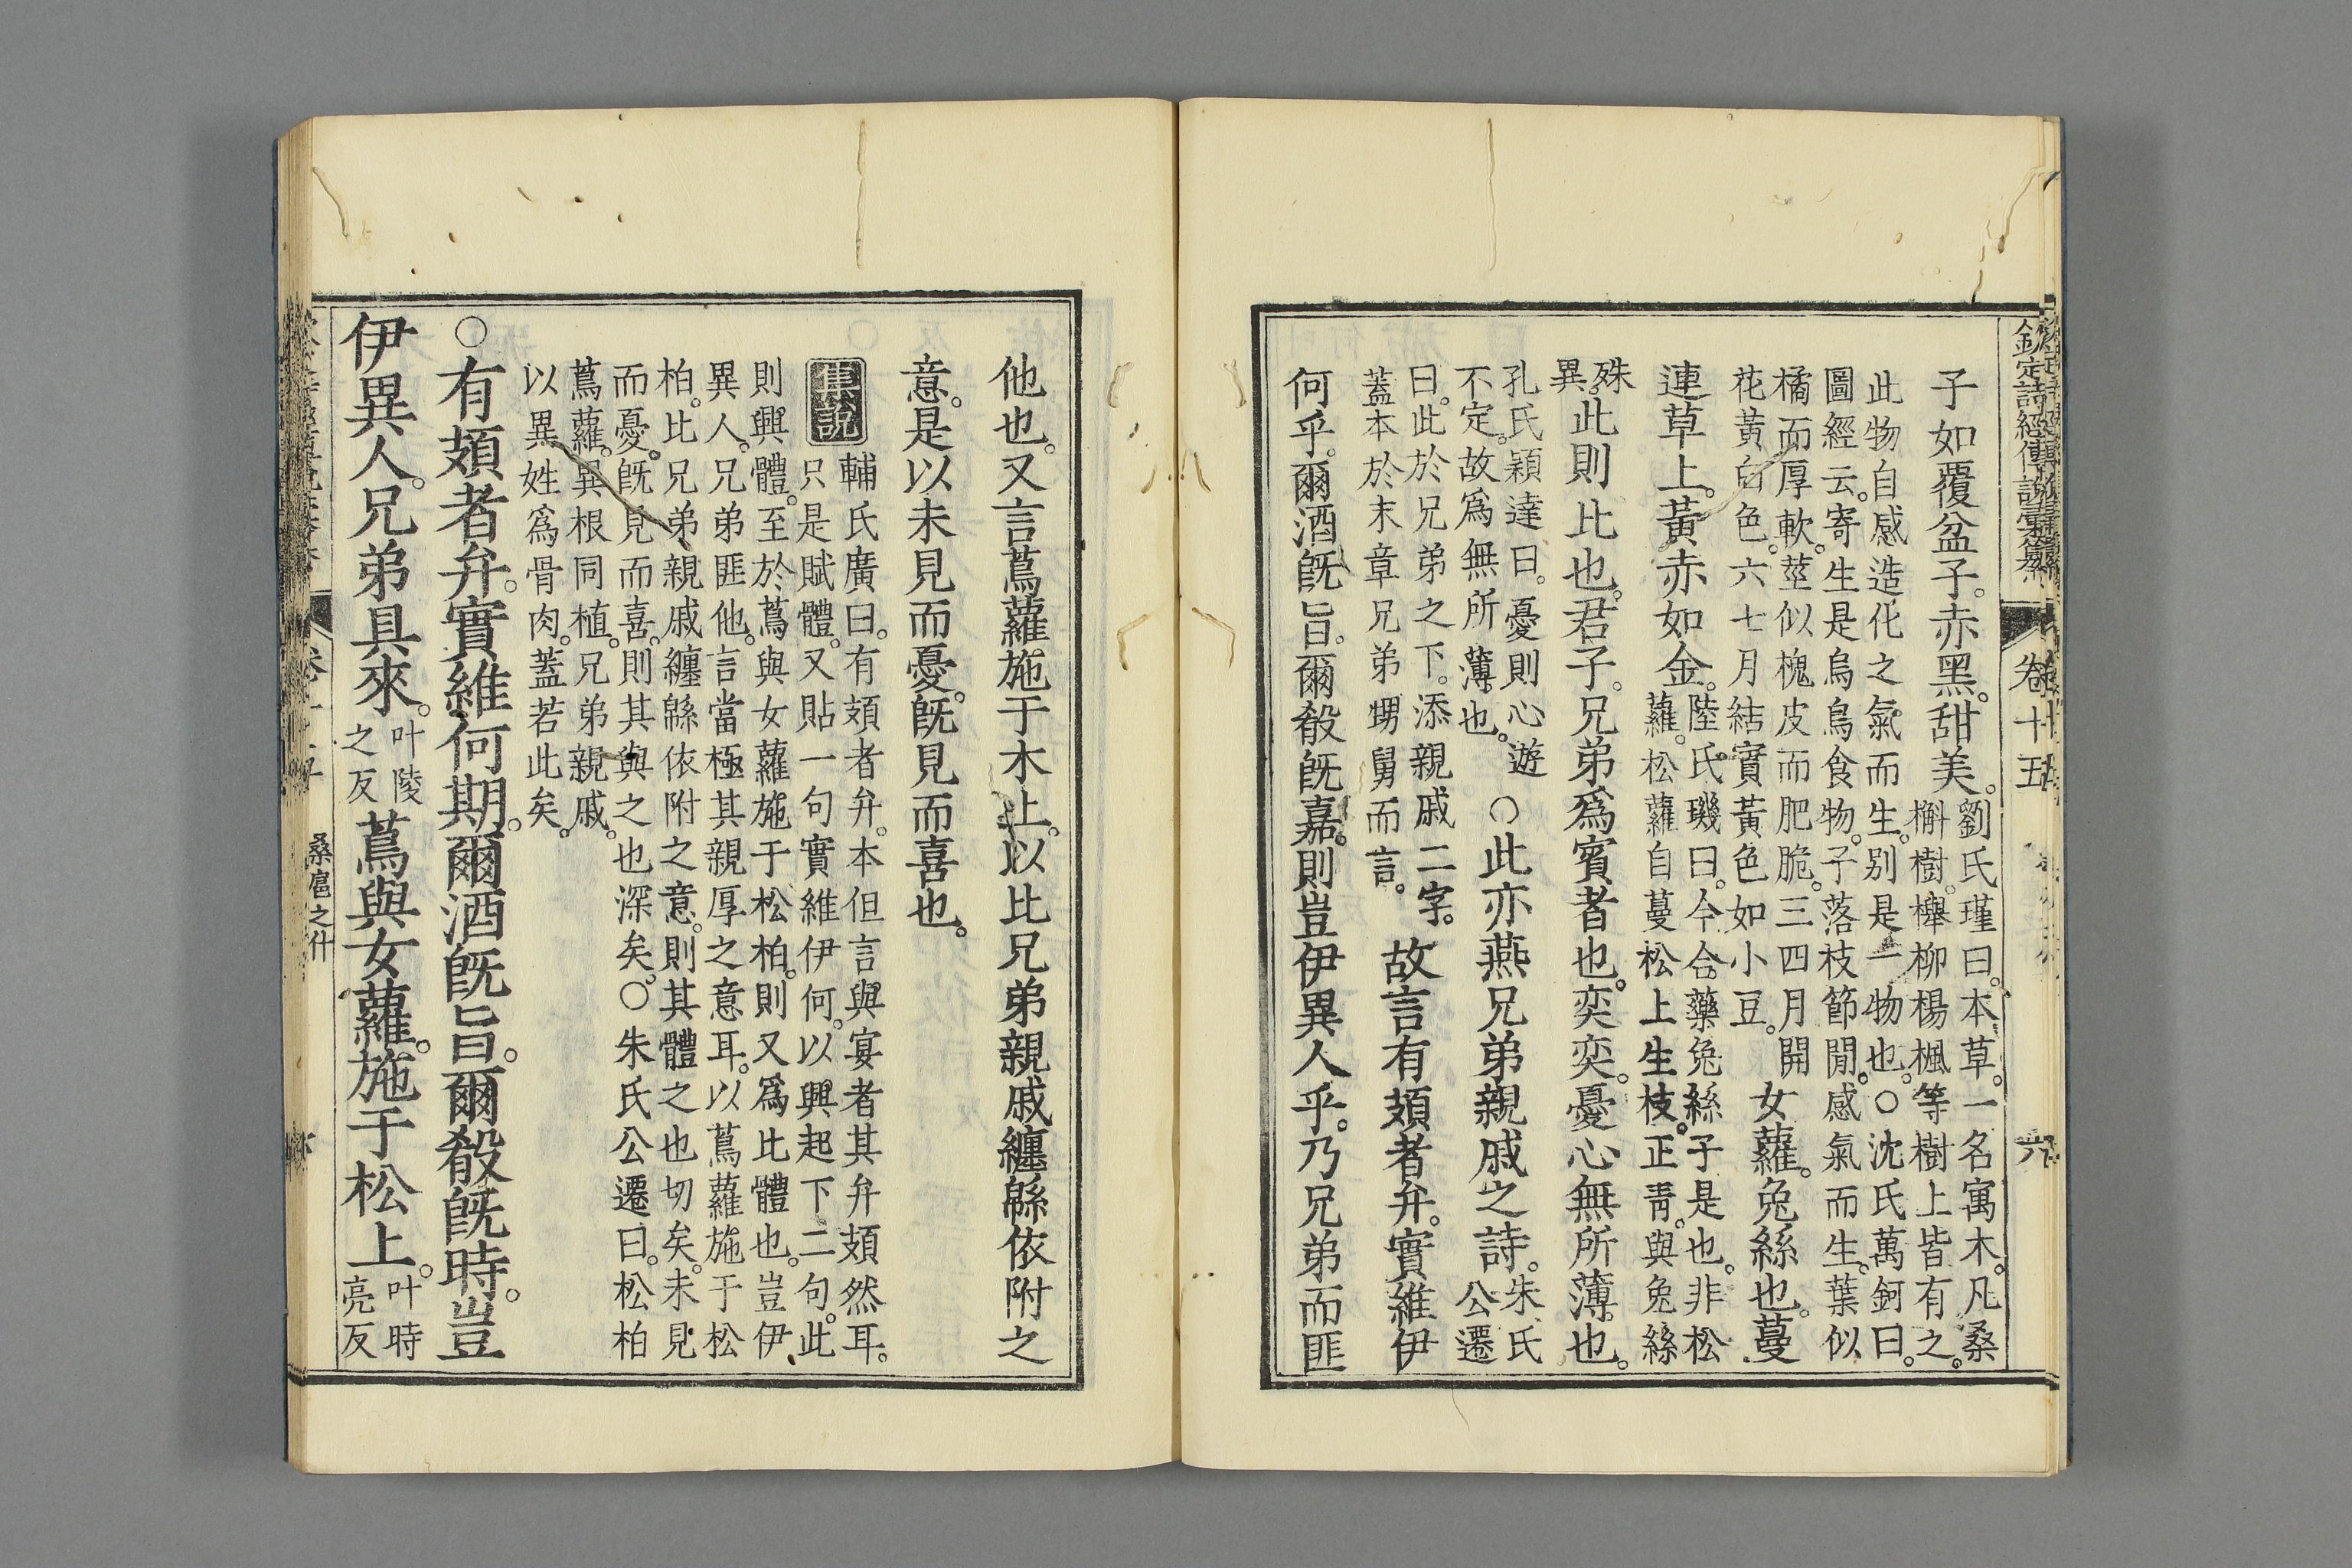 欽定詩經傳說彙纂
卷十五
六
子如覆盆子。赤黑。甜美。劉氏瑾曰。本草。一名寓木。凡桑
槲樹。櫸柳楊楓等樹上皆有之。
此物自感造化之氣而生。別是一物也。○沈氏萬鈳曰。
圖經云。寄生是烏鳥食物。子落枝節閒。感氣而生。葉似
橘而厚軟。莖似槐皮而肥脆。三四月開
花黃白色。六七月結實黃色如小豆。
女蘿。兔絲也。蔓
連草上。黃赤如金。陸氏璣曰。今合藥兔絲子是也。非松
蘿。松蘿自蔓松上生枝。正靑。與兔絲
殊
異。此則比也。君子。兄弟爲賓者也。奕奕。憂心無所薄也。
孔氏穎達曰。憂則心遊
不定。故爲無所薄也。
○此亦燕兄弟親戚之詩。朱氏
公遷
曰。此於兄弟之下。添親戚二字。
蓋本於末章兄弟甥舅而言。
故言有頍者弁。實維伊
何乎。爾酒旣旨。爾殽旣嘉。則豈伊異人乎。乃兄弟而匪
他也。又言蔦蘿施于木上。以比兄弟親戚纏緜依附之
意。是以未見而憂。旣見而喜也。
集說
輔氏廣曰。有頍者弁。本但言與宴者其弁頍然耳。
只是賦體。又貼一句實維伊何。以興起下二句。此
則興體。至於蔦與女蘿施于松柏。則又爲比體也。豈伊
異人。兄弟匪他。言當極其親厚之意耳。以蔦蘿施于松
柏。比兄弟親戚纏緜依附之意。則其體之也切矣。未見
而憂。旣見而喜。則其與之也深矣。○朱氏公遷曰。松柏
蔦蘿。異根同植。兄弟親戚。
以異姓爲骨肉。蓋若此矣。
○有頍者弁。實維何期。爾酒旣旨。爾殽旣時。豈
伊異人。兄弟具來。叶陵
之反
蔦與女蘿。施于松上。叶時
亮反
桑扈之什